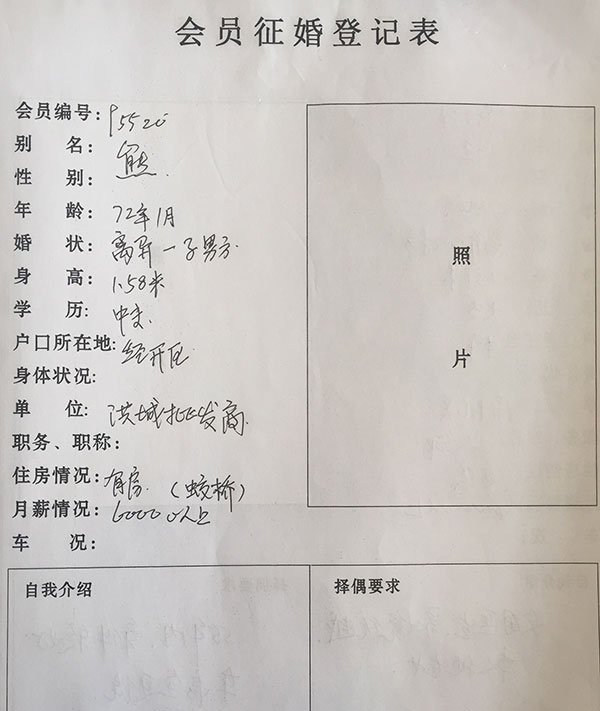 会员征婚登记表
会员编号: 95520
别 名: 熊
性 别:
年 龄: 72年1月
婚 状: 离异一子男方
身 高: 1.58米
学 历: 中专
户口所在地: 经开区
身体状况:
单 位: 洪城批发商
职务、职称:
住房情况: 有房.（蛟桥）
月薪情况: 6000以上
车 况:
照
片
自我介绍
择偶要求